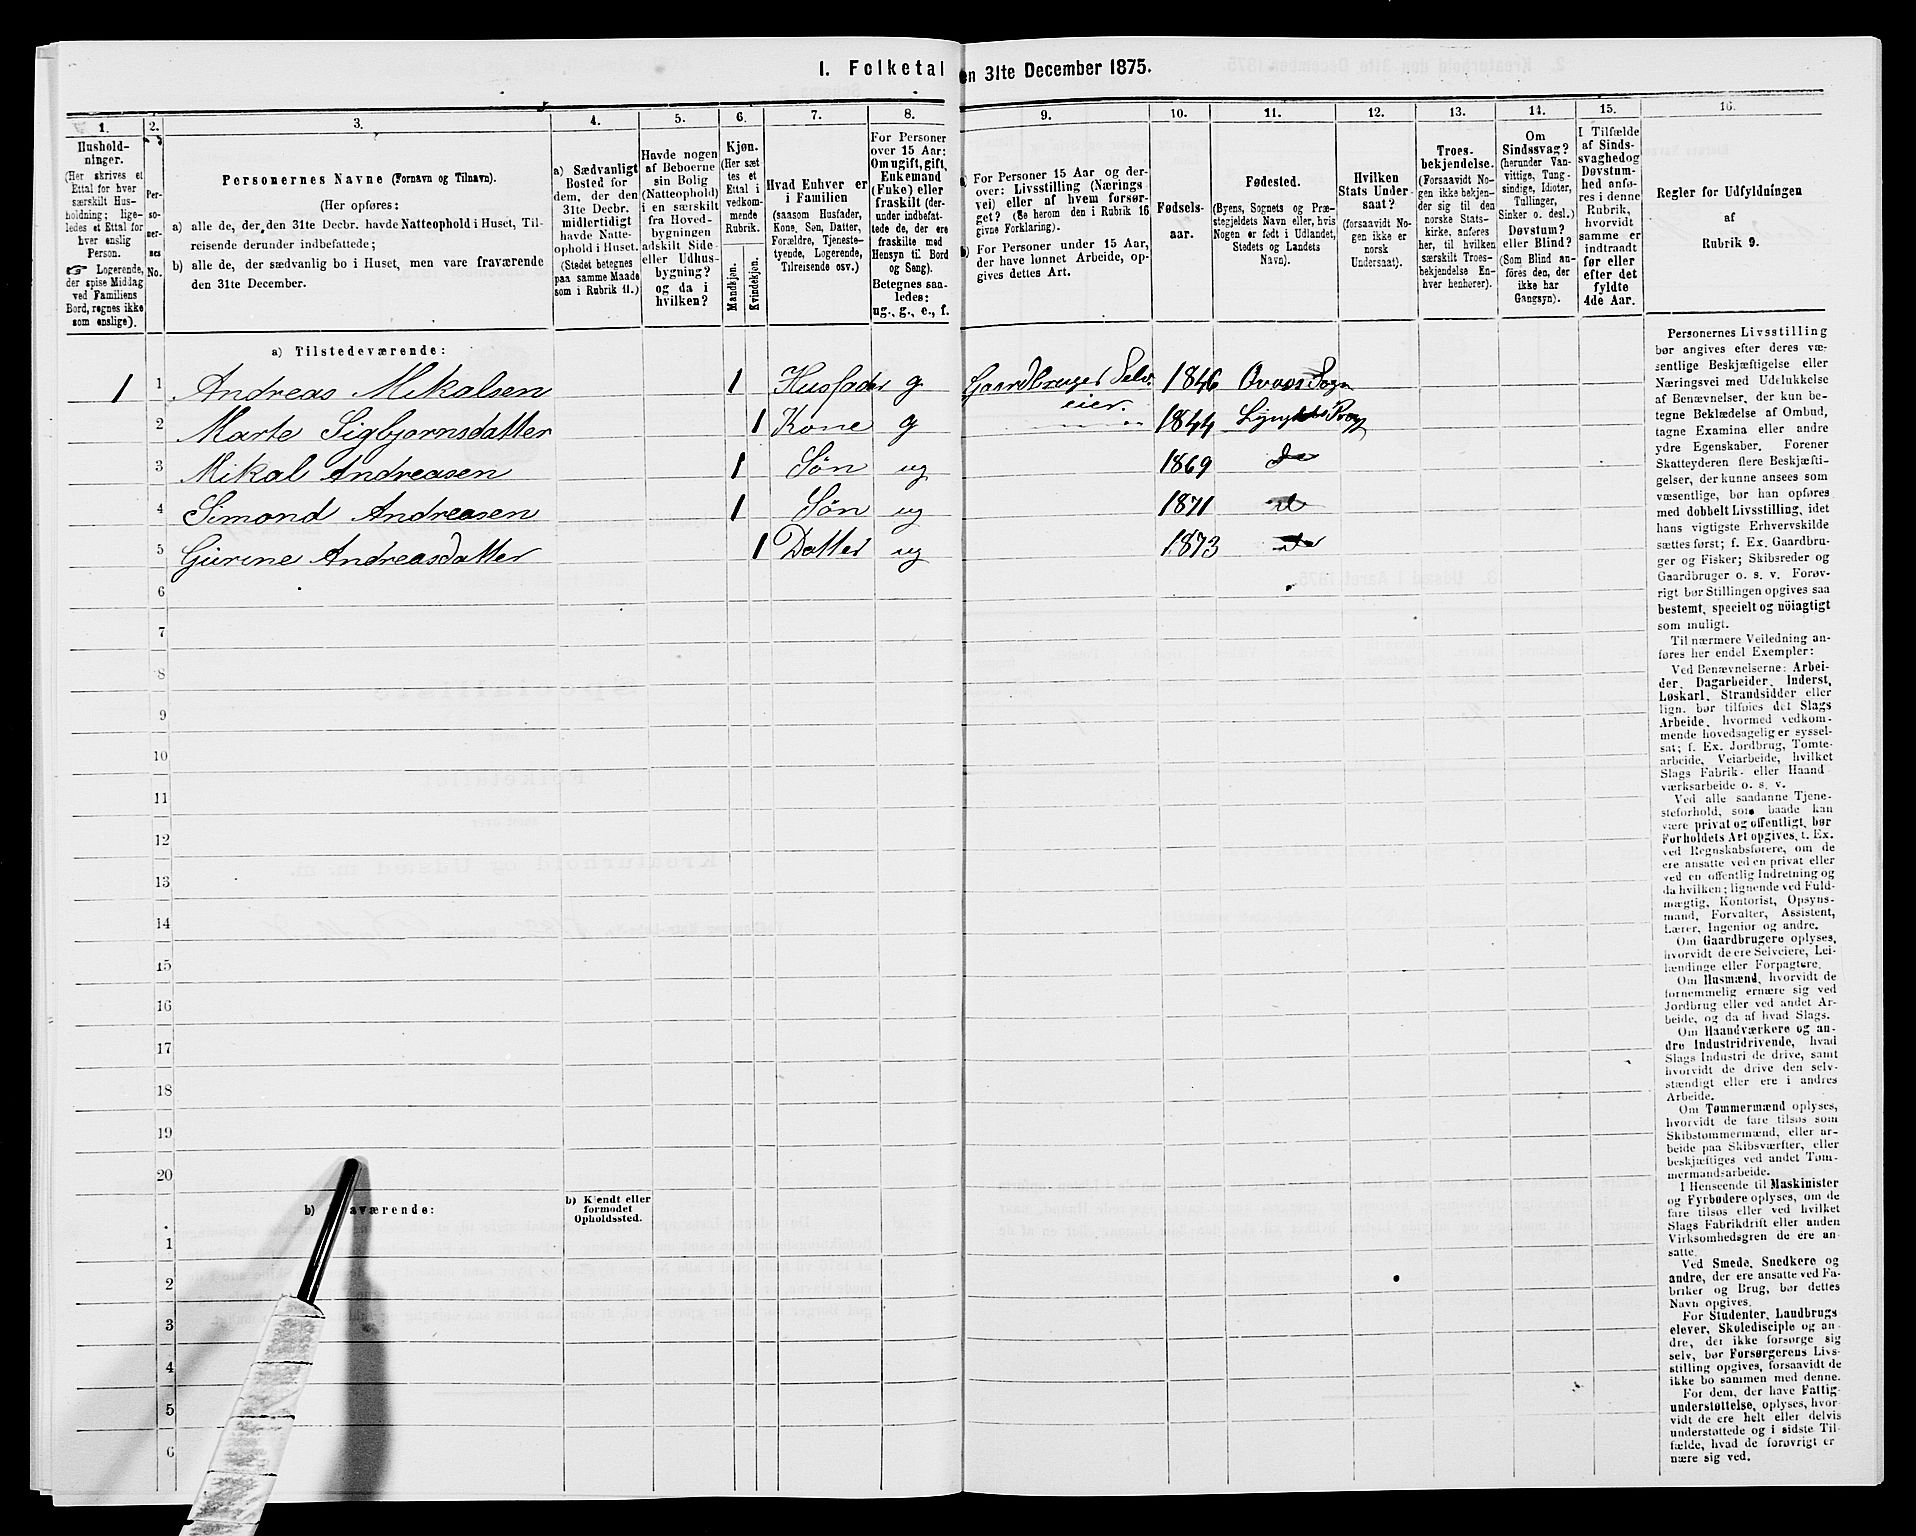 1. Folketal en 31te December 1875.
1.
Hushold-
ninger.
(Her skrives et
Ettal for hver
særskilt Hus-
holdning; lige-
ledes et Ettal for
hver enslig
Person.
☞ Logerende,
der spise Middag
ved Familiens
Bord, regnes ikke
som enslige).
2.
Per-
so-
ner-
nes
No.
3.
Personernes Navne (Fornavn og Tilnavn).
(Her opføres:
a) alle de, der den 31te Decbr. havde Natteophold i Huset, Til-
reisende derunder indbefattede;
b) alle de, der sædvanlig bo i Huset, men vare fraværende
den 31te December.
4.
a) Sædvanligt
Bosted for
dem, der den
31te Decbr.
midlertidigt
havde Natte-
ophold i Huset.
(Stedet betegnes
paa samme Maade
som i Rubrik 11.)
5.
Havde nogen
af Beboerne
sin Bolig
(Natteophold)
i en særskilt
fra Hoved-
bygningen
adskilt Side-
eller Udhus-
bygning?
og da i
hvilken?
6.
Kjøn.
(Her sæt
tes et
Ettal i
vedkom-
mende
Rubrik.
Mandkjøn.
Kvindekjøn.
7.
Hvad Enhver er
i Familien
(saasom Husfader,
Kone, Søn, Datter,
Forældre, Tjeneste-
tyende, Logerende,
Tilreisende osv.)
8.
For Personer
over 15 Aar:
Om ugift, gift,
Enkemand
(Enke) eller
fraskilt (der-
under indbefat-
tede de, der ere
fraskilte med
Hensyn til Bord
og Seng).
Betegnes saa-
ledes:
ug., g., e., f.
9.
a) For Personer 15 Aar og der-
over: Livsstilling (Nærings
vei) eller af hvem forsør-
get? (Se herom den i Rubrik 16
givne Forklaring).
b) For Personer under 15 Aar,
der have lønnet Arbeide, op-
gives dettes Art.
10.
Fødsels-
aar.
11.
Fødested.
(Byens, Sognets og Præ-
stegjeldets Navn eller, hvis
Nogen er født i Udlandet,
Stedets og Landets
Navn).
12.
Hvilken
Stats Under-
saat?
(forsaavidt No-
gen ikke er
norsk
Undersaat).
13.
Troes-
bekjendelse.
(Forsaavidt No-
gen ikke bekjen-
der sig til den
norske Stats-
kirke, anføres
her, til hvilken
særskilt Troes-
bekjendelse En-
hver henhører).
14.
Om
Sindssvag?
(herunder Van-
vittige, Tung-
sindige, Idioter,
Tullinger,
Sinker o. desl.)
Døvstum?
eller Blind?
(Som Blind an-
føres den, der
ikke har
Gangsyn).
15.
I Tilfælde
af Sinds-
svaghed og
Døvstum-
hed anfø-
res i denne
Rubrik,
hvorvidt
samme er
indtraadt
før eller
efter det
fyldte
4de Aar.
16.
Regler for Udfyldningen
af
Rubrik 9.
a) Tilstedeværende:
1 1 Andreas Mikalsen 1 Husfader g Gaardbruger Selv- 1846 Sogn
eier.
2 Marte Sigbjørnsdatter 1 Kone g 1844
3 Mikal Andreasen 1 Søn ug 1869 do
4 Simond Andreasen 1 Søn ug 1871 do
5 Gurine Andreasdatter 1 Datter ug 1873 do
6
7
8
9
10
11
12
13
14
15
16
17
18
19
20
b) aværende:
b) Kjendt eller
formodet
Opholdssted.
1
2
3
4
5
6
Personernes Livsstilling
bør angives efter deres væ-
sentlige Beskjæftigelse eller
Næringsvei med Udelukkelse
af Benævnelser, der kun be-
tegne Beklædelse af Ombud,
tagne Examina eller andre
ydre Egenskaber. Forener
Skatteyderen flere Beskjæfti-
gelser, der kunne ansees som
væsentlige, bør han opføres
med dobbelt Livsstilling, idet
hans vigtigste Erhvervskilde
sættes først; f. Ex. Gaardbru-
ger og Fisker; Skibsreder og
Gaardbruger o. s. v. Forøv-
rigt bør Stillingen opgives saa
bestemt, specielt og nöiagtigt
som muligt.
Til nærmere Veiledning an-
føres her endel Exempler:
Ved Benævnelserne: Arbei-
der, Dagarbeider, Inderst,
Løskarl, Strandsidder eller
lign. bør tilføies det Slags
Arbeide, hvormed vedkom-
mende hovedsagelig er syssel-
sat; f. Ex. Jordbrug, Tomte-
arbeide, Veiarbeide, hvilket
Slags Fabrik- eller Haand
værksarbeide o. s. v.
Ved alle saadanne Tjene-
steforhold, som baade kan
være privat og offentligt, bør
Forholdets Art opgives, t. Ex.
ved Regnskabsførere, om de
ere ansatte ved en privat eller
ved en offentlig Indretning og
da hvilken; lignende ved Fuld-
mægtig, Kontorist, Opsyns-
mand, Forvalter, Assistent,
Lærer, Ingeniør og andre.
Om Gaardbrugere oplyses,
hvorvidt de ere Selveiere, Lei-
lændinge eller Forpagtere.
Om Husmænd, hvorvidt de
fornemmelig ernære sig ved
Jordbrug eller ved andet Ar-
beide, og da af hvad Slags.
Om Haandværkere og an-
dre Industridrivende, hvad
Slags Industri de drive, samt
hvorvidt de drive den selv-
stændigt eller ere i andres
Arbeide.
Om Tømmermænd oplyses,
hvorvidt de fare tilsøs som
Skibstømmermænd, eller ar-
beide paa Skibsværfter, eller
beskjæftiges ved andet Tøm-
mermandsarbeide.
I Henseende til Maskinister
og Fyrbødere oplyses, om de
fare tilsøs eller ved hvilket
Slags Fabrikdrift eller anden
Virksomhedsgren de ere an-
satte.
Ved Smede, Snedkere og
andre, der ere ansatte ved Fa-
briker og Brug, bør dettes
Navn opgives.
For Studenter, Landbrugs
elever, Skoledisciple og an-
dre, det ikke forsørge sig
selv, bør Forsørgerens Livs-
stilling opgives, forsaavidt de
ikke bo sammen med denne.
For dem, der have Fattig-
understøttelse, oplyses, hvor-
vidt de ere helt eller delvis
understøttede og i sidste Til-
fælde, hvad de forøvrigt er
nære sig ved.